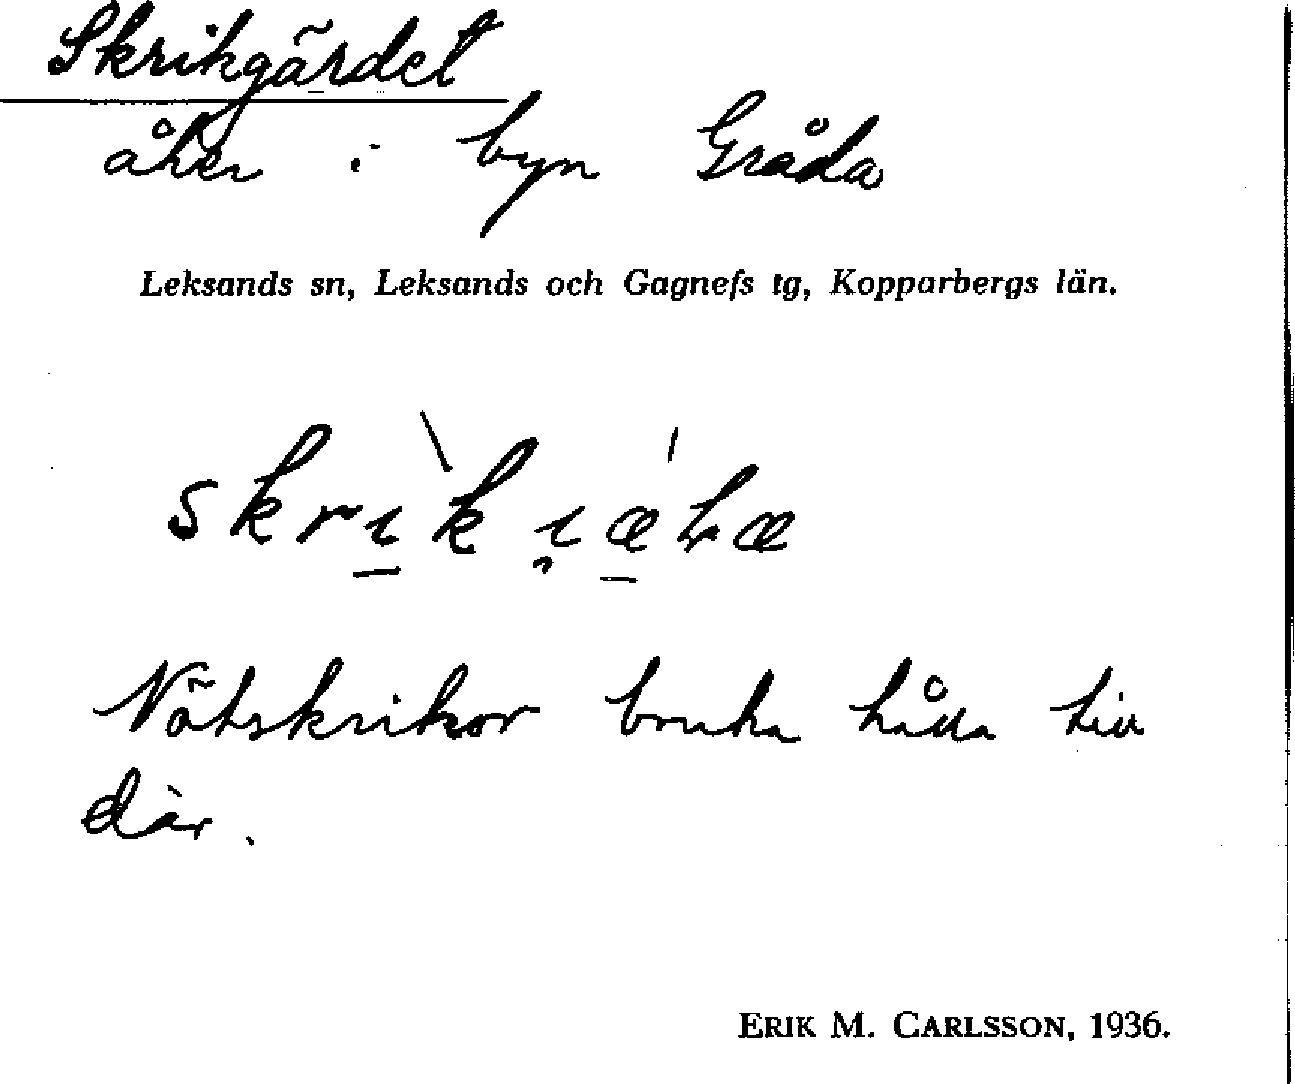 Skrikgärdet
åker i byn Gråda
Leksands sn, Leksands och Gagnefs tg, Kopparbergs län.
Nötskrikor bruka hålla till
där.
ERIK M. CARLSSON, 1936.